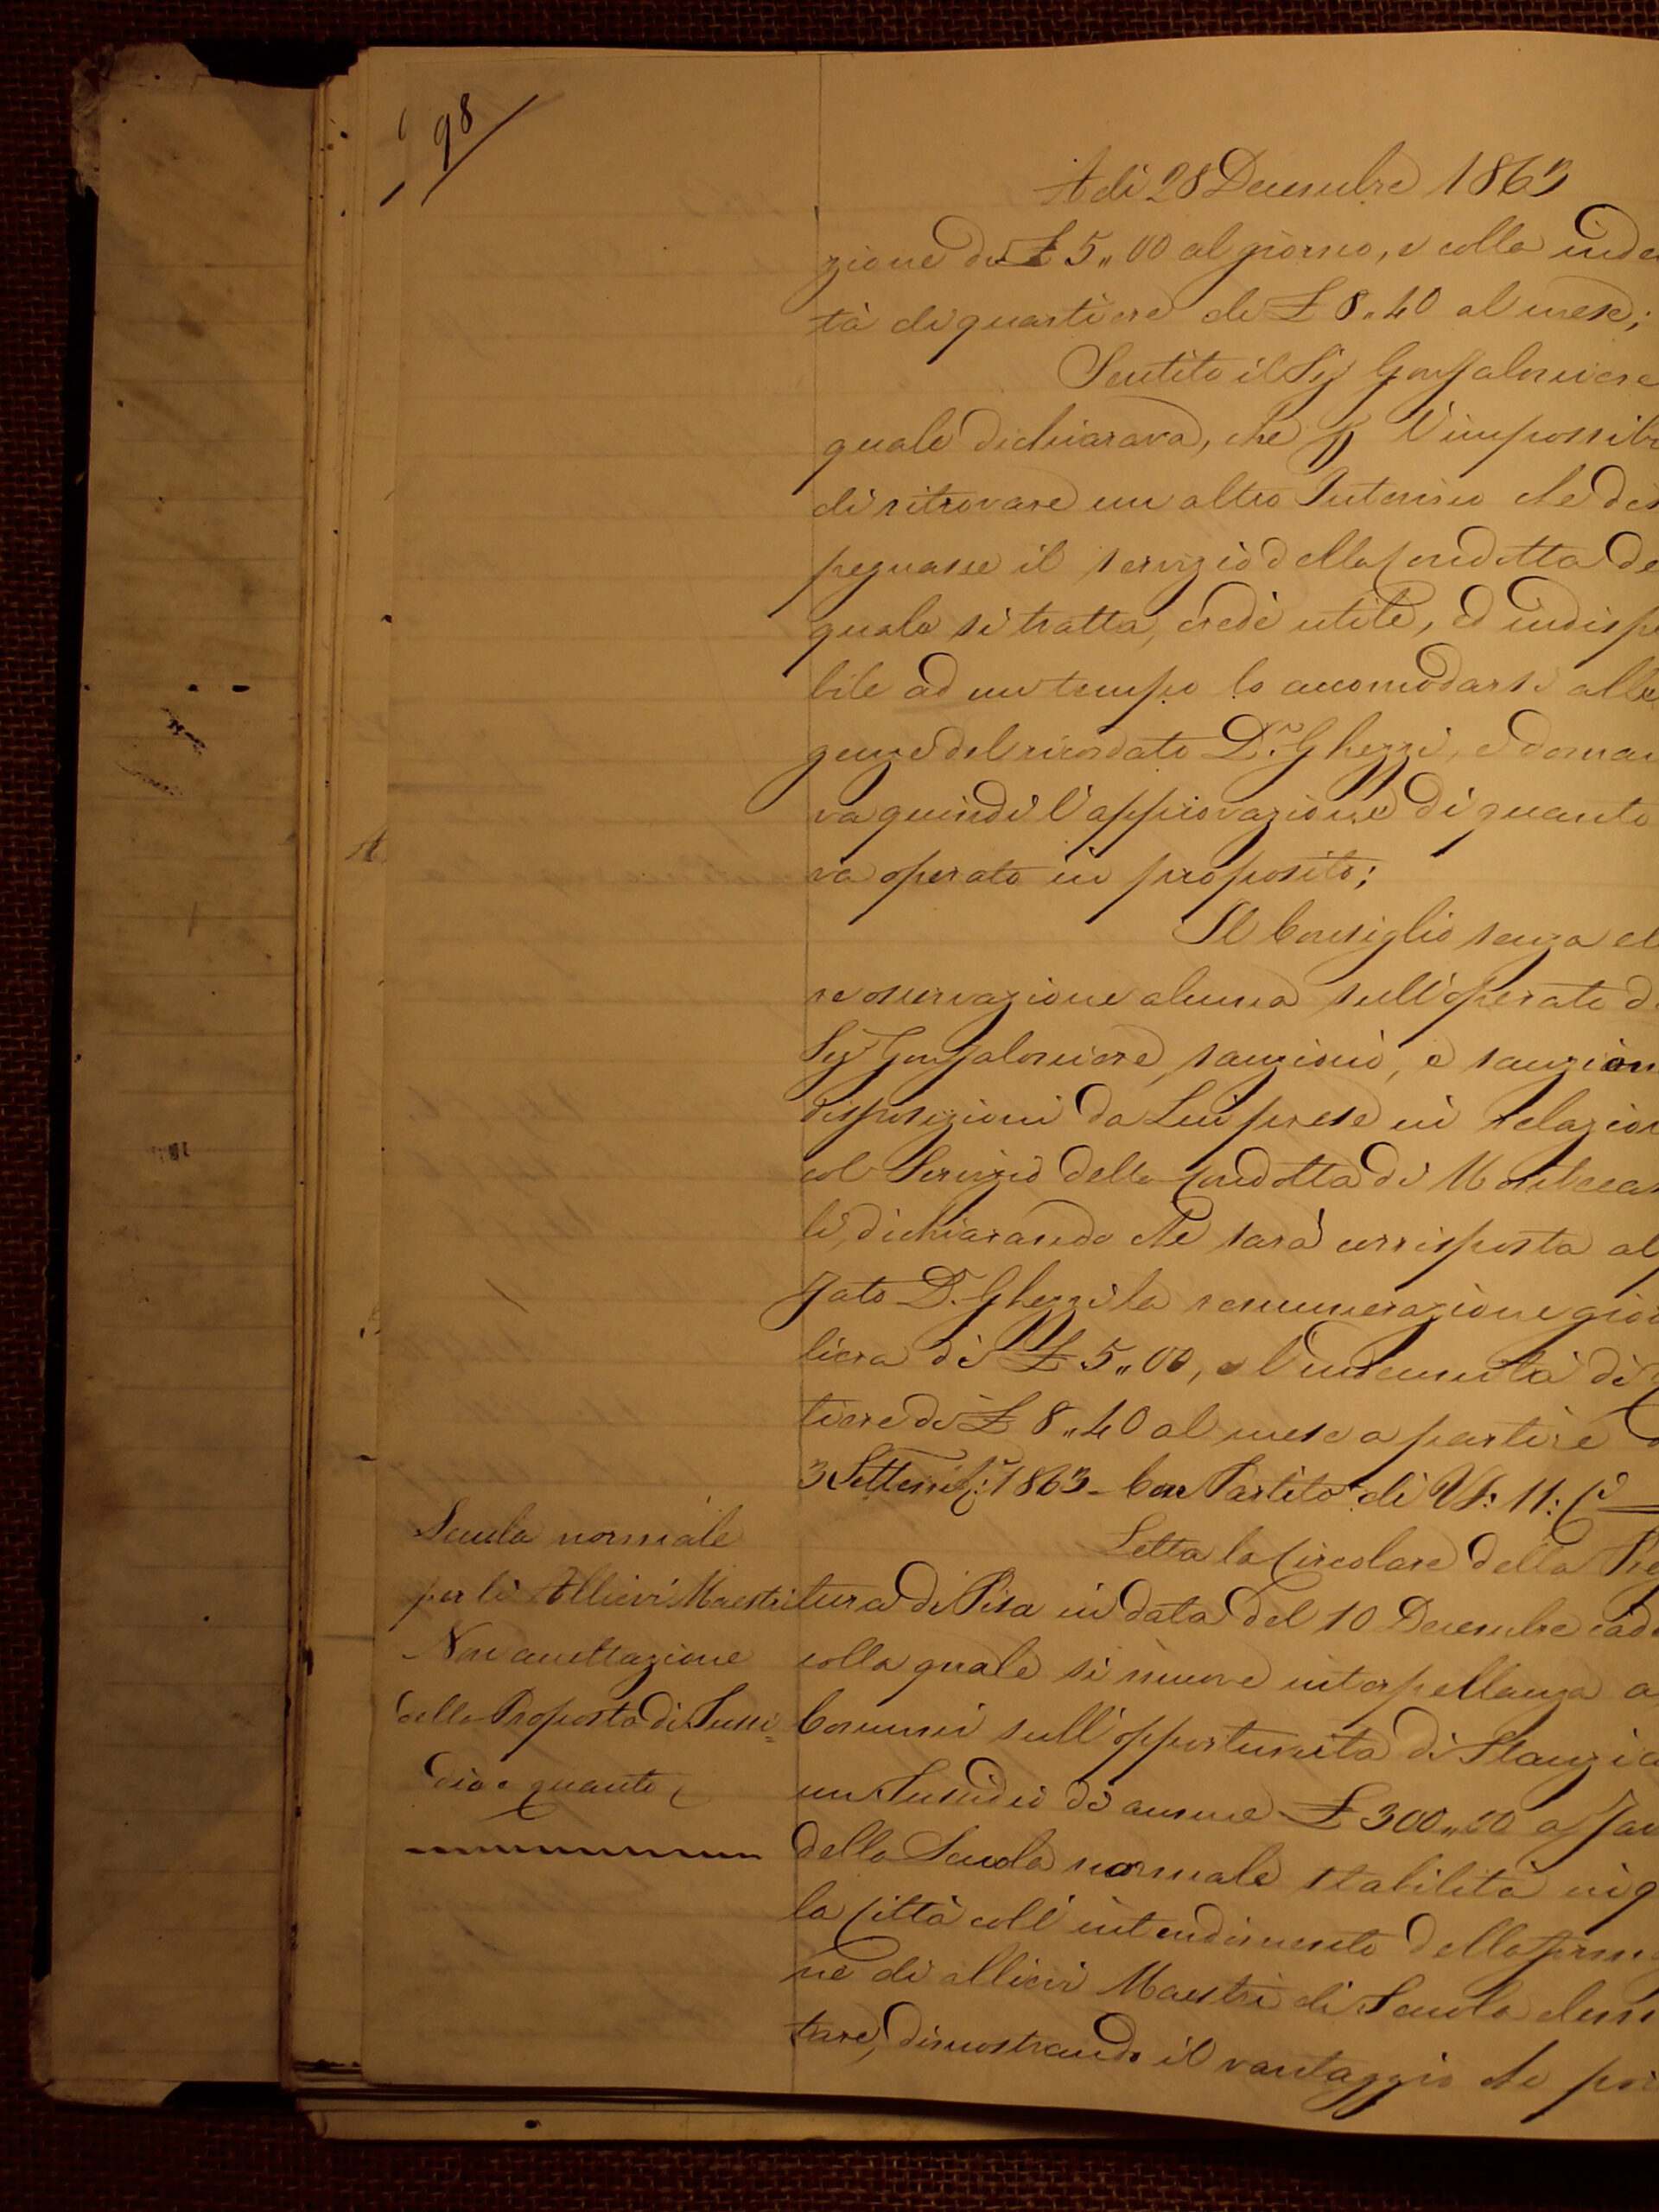 98
A dì 28 Decembre 1863
zione di £ 5,,00 al giorno, e colla inde
tà di quartiere di £ 8,,40 al mese;
Sentito il Sig Gonfaloniere
quale dichiarava, che l'impossibi
di ritrovare un altro Interino che dis
pegnasse il servizio della Condotta de
quale si tratta, credè utile, ed indispe
bile ad un tempo lo accomodarsi alle
genze del ricordato D.r Ghezzi, e doman
va quindi l'approvazione di quanto
va operato in proposito;
Il Consiglio senza el
re osservazione alcuna sull'operato d
Sig Gonfaloniere, sanzionò, e sanzion
disposizioni da Lui prese in relazion
col Servizio della Condotta di Montecas
li, dichiarando che sarà corrisposta al
fato D.r Ghezzi la remunerazione gior
liera di £ 5,,00, e l'indennità di q
tiere di £ 8,,40 al mese a partire d
3 Settemb: 1863 - Con Partito di Vf: 11: C
Letta la Circolare della Pre
Scuola normale
per li Allievi Maestri
Non accettazione
della Proposta di Sussi=
dio e quanto
tura di Pisa in data del 10 Decembre cad
colla quale si muove interpellanza a
Comuni sull'opportunità di Stanzia
un Sussidio di annue £ 300,,00 a fav
della Scuola normale stabilita in q
la Città coll'intendimento della form
ne di allievi Maestri di Scuola elem
tare, dimostrando il vantaggio che po